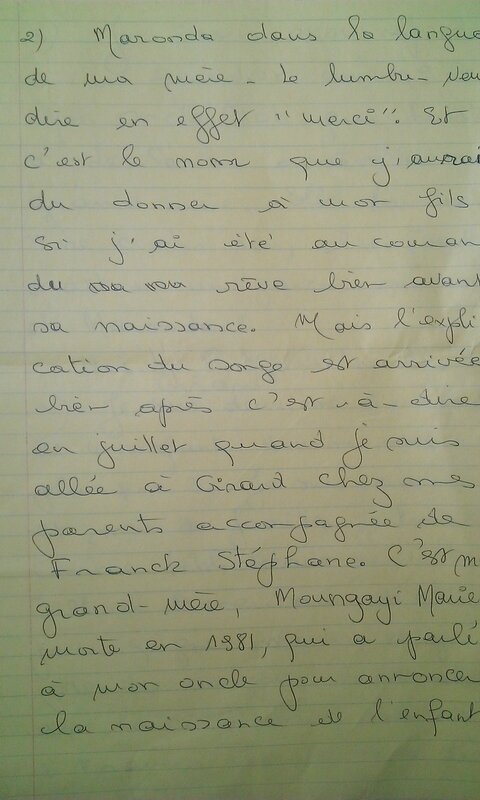 2) Maronda dans la langue
de ma mère - Le lumbu - veu
dire en effet "merci". Et
c'est le nom que j'aurai
du donner à mon fils
si j'ai été au couran
du rêve bien avant
sa naissance. Mais l'expli
cation du songe est arrivée
bien après c'est-à-dire
en juillet quand je suis
allée à Girard chez mes
parents accompagnée de
Franck Stéphane. C'est m
grand-mère, Moungayi Marie
morte en 1981, qui a parlé
à mon oncle pour annoncer
la naissance de l'enfant